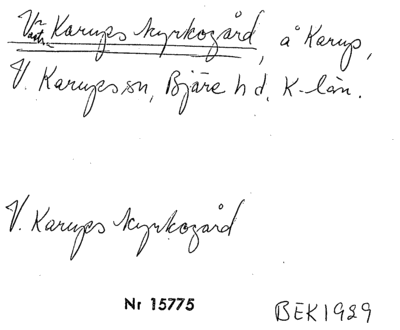 Västra Karups kyrkogård, å Karup,
V. Karups sn, Bjäre hd, K-län.
V. Karups kyrkogård
Nr 15775
BEK1929